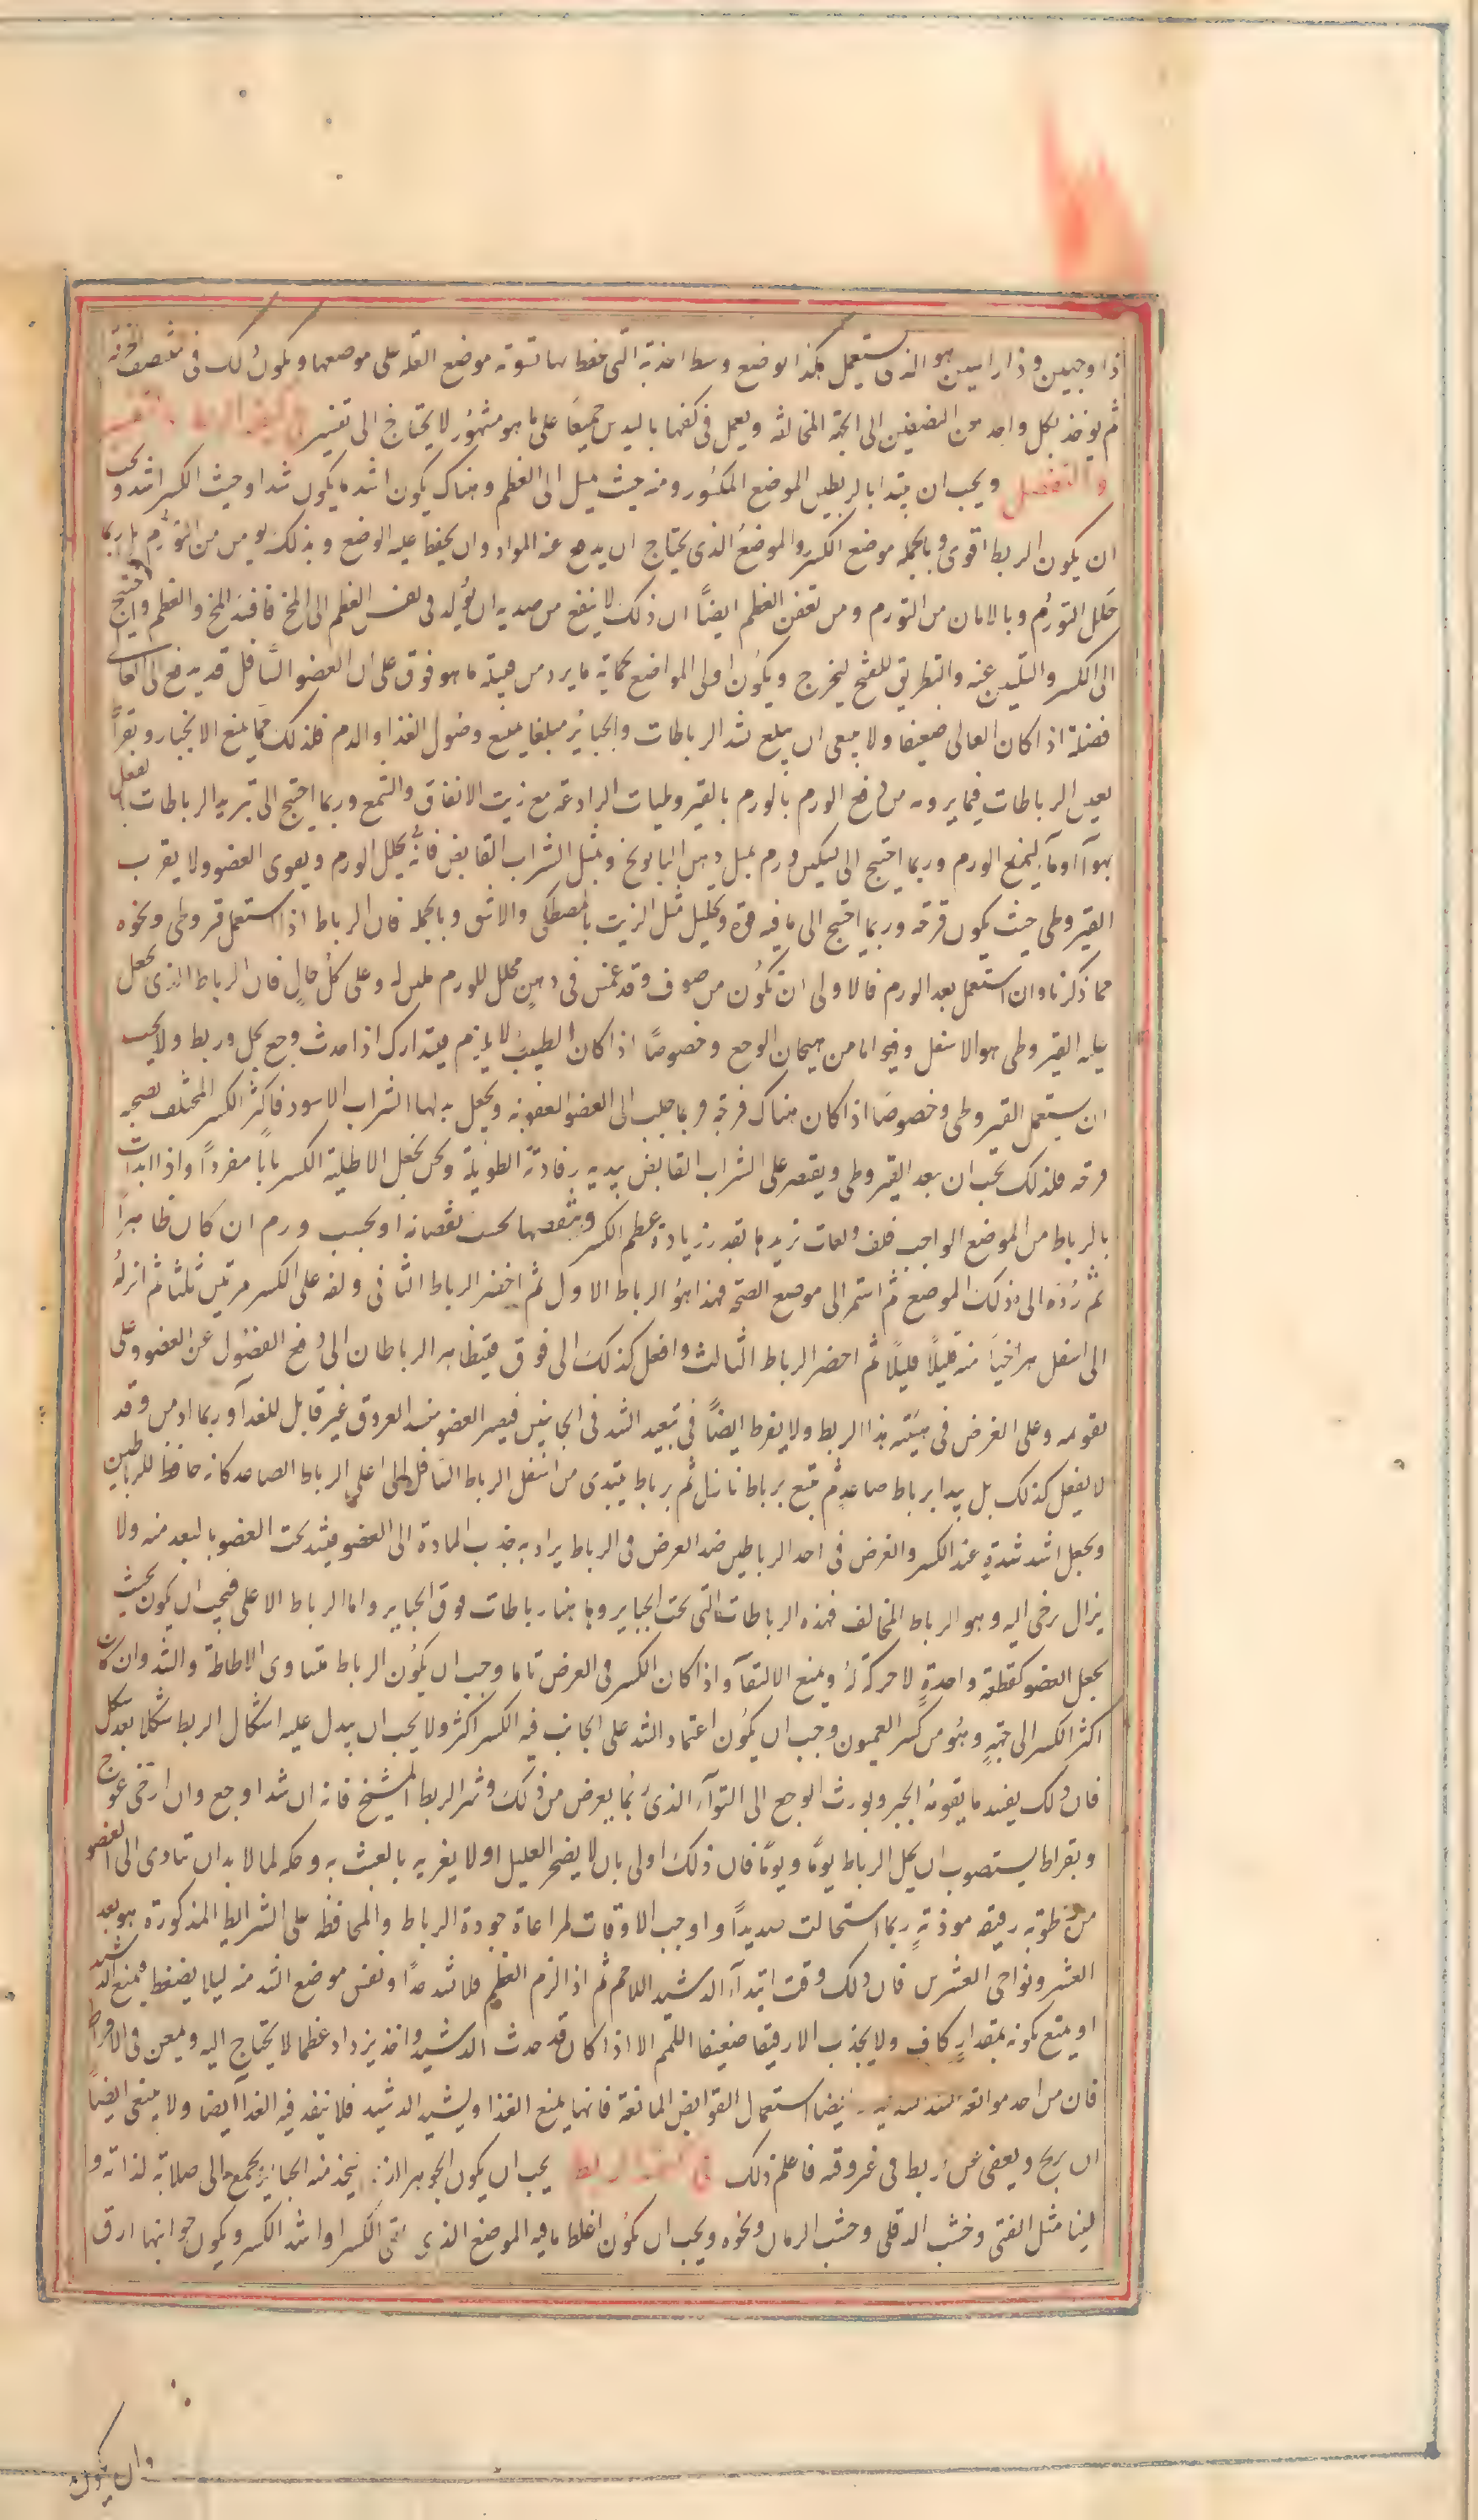 اذا وجهين وذا راسين هو الذى يستعمل هكذا يوضع وسط اخذته التى موضع العله على موضعها ويكون ذلك فى منتصف
ثم يوخذ بكل واحد من النصفين الى الجهة المخالفة ويعمل فى كفها باليدين جميعًا على ما هو مشهور لا يحتاج الى تفسير
والتفصيل ويجب ان يبتدا بالربط من الموضع المكسور ومنه حيث يميل الى العظم وهناك يكون اشد ما يكون شدا وحيث الكسر اشد ويجب
ان يكون الربط اقوى وبالجمله موضع الكسر والموضع الذى يحتاج ان يدفع عنه المواد وان يحفظ عليه الوضع وبذلك يومن من التورم بل ربما
حلل التورم وبالامان من التورم ومن تعفن العظم ايضًا ان ذلك لا ينفع من صديد ان تولد فى نفس العظم الى المخ فافسد المخ والعظم واحتيج
الى الكسر والتليين عنه والتطريق للقيح ليخرج ويكون اولى المواضع بحماية ما يرد من جهته ما هو فوق على ان العضو السافل قد يدفع الى العالى
فضلة اذا كان العالى ضعيفا ولا ينبغى ان يبلغ شد الرباطات والجبائر مبلغا يمنع وصول الغذا والدم فلذلك مما يمنع الانجبار وبقراط
يعين الرباطات فيما يرومه من دفع الورم بالورم بالقيروطيات الرادعة مع زيت الانفاق والشمع وربما احتيج الى تبريد الرباطات بالفعل
بهوآ او مآ ليمنع الورم وربما احتيج الى تسكين ورم بمثل دهن البابونج وبمثل الشراب القابض فانه يحلل الورم ويقوى العضو ولا يقرب
القيروطى حيث يكون قرحة وربما احتيج الى ما فيه قوة وتحليل مثل الزيت بالمصطكى والاشق وبالجمله فان الرباط اذا استعمل قروطى ونحوه
مما ذكرنا وان استعمل بعد الورم فالاولى ان تكون من صوف وقد غمس فى دهن محلل للورم ملين له وعلى كل حال فان الرباط الذى يجعل
يليه القيروطى هو الاسفل وفيه امان من هيجان الوجع وخصوصًا اذا كان الطبيب لا يلازم فيتدارك اذا حدث وجع بحل وربط ولا يجب
ان يستعمل القيروطى وخصوصًا اذا كان هناك قرحة فربما جلب الى العضو العفونه ويجعل بدلها الشراب الاسود فاكثر الكسر المختلف يصحبه
قرحه فلذلك يجب ان يبعد القيروطى ويقتصر على الشراب القابض يبل به رفادته الطويلة ونحن نجعل الاطلية الكسر بابًا مفردًا واذا ابتدات
بالرباط من الموضع الواجب فلف لفات تزيدها بقدر زيادة عظم الكسر وتنقصها بحسب نقصانه او بحسب ورم ان كان ظاهرًا
ثم رده الى ذلك الموضع ثم استمر الى موضع الصحة فهذا هو الرباط الاول ثم احضر الرباط الثانى ولفه على الكسر مرتين ثلثا ثم انزله
الى اسفل مراخيًا منه قليلًا قليلًا ثم احضر الرباط الثالث وافعل كذلك الى فوق فيتظاهر الرباطان الى دفع الفضول عن العضو وعلى
تقويمه وعلى الغرض فى هيئته هذا الربط ولا يفرط ايضًا فى تبعيد الشد فى الجانبين فيصير العضو منسد العروق غير قابل للغذآ وربما ازمن وقد
لا يفعل كذلك بل يبدا برباط صاعد ثم يتبع برباط نازل ثم برباط يبتدى من اسفل الرباط السافل الى اعلى الرباط الصاعد كانه حافظ للرباطين
ويجعل اشد شدة عند الكسر والغرض فى احد الرباطين ضد الغرض فى الرباط يراد به جذب المادة الى العضو فيشد تحت العضو بالبعد منه ولا
يزال يرخى اليه وهو الرباط المخالف فهذه الرباطات التى تحت الجباير وهاهنا رباطات فوق الجباير واما الرباط الاعلى فيجب ان يكون بحيث
يجعل العضو كقطعة واحدة لا حركة له ويمنع الالتقآ واذا كان الكسر فى العرض تاما وجب ان يكون الرباط متساوى الاحاطة والشد وان كان
اكثر الكسر الى جهة وهو من كسر العميون وجب ان يكون اعتماد الشد على الجانب فيه الكسر اكثر ولا يجب ان يبدل عليه اشكال الربط شكلا بعد شكل
فان ذلك يفسد ما يقومه الجبر ويورث الوجع الى التوآء الذى ربما يعرض من ذلك وشر الربط المشيخ فانه ان شد اوجع وان ارخى عوج
وبقراط يستصوب ان يحل الرباط يومًا ويومًا فان ذلك اولى بان لا يضجر العليل ولا يغريه بالعبث به وحكه لما لا بد ان تتادى الى العضو
من رطوبة رقيقه موذية ربما استحالت صديدًا واوجب الاوقات لمراعاة جودة الرباط والمحافظه على الشرايط المذكورة هو بعد
العشر ونواحى العشرين فان ذلك وقت ابتدآء الدشبد اللاحم ثم اذا لزم العظم فلا تشد جدًا ونفس موضع الشد منه ليلا يضغط فيمنع الدشبد
او يمنع كونه بمقدار كاف ولا يجذب الا رقيقا ضعيفا اللهم الا اذا كان قد حدث الدشبد واخذ يزداد عظما لا يحتاج اليه ويمعن فى الافراط
فان من احد موانعه ايضا استعمال القوابض المانعة فانها يمنع الغذا ويشد الدشبد فلا ينفذ فيه الغذآ ايضا ولا ينبغى ايضًا
ان يريح ويعفى عن ربط فى غير وقته فاعلم ذلك يجب ان يكون الجوهر الذى يتخذ منه الجبائر يجمع الى صلابته لذاته و
لينا مثل القنى وخشب الدفلى وخشب الرمان ونحوه ويجب ان يكون اغلظ ما فيه الموضع الذى يلقى الكسر او اشد الكسر ويكون جوانبها ارق
وان يكون